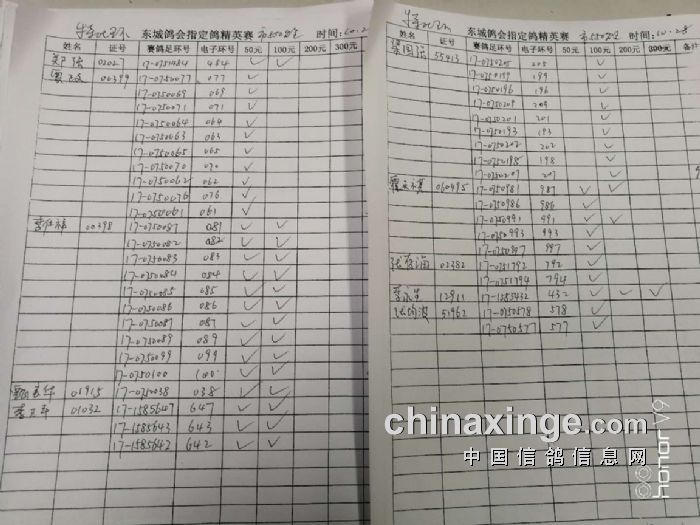 特比环
东城鸽会指定鸽精英赛 市550公里 时间:10.2
姓名 证号 赛鸽足环号 电子环号 50元 100元 200元 300元
02027 17-0751484 484 ✓ ✓
00399 17-0750077 077 ✓
17-0750069 069 ✓
17-0750071 071 ✓
17-0750064 064 ✓
17-0750063 063 ✓
17-0750065 065 ✓
17-0750070 070 ✓
17-0750062 062 ✓
17-0750076 076 ✓
17-0750061 061 ✓
00398 17-0750081 081 ✓ ✓
17-0750082 082 ✓ ✓
17-0750083 083 ✓ ✓
17-0750084 084 ✓ ✓
17-0750085 085 ✓ ✓
17-0750086 086 ✓ ✓
17-0750087 087 ✓ ✓
17-0750089 089 ✓ ✓
17-0750099 099 ✓ ✓
17-0750100 100 ✓ ✓
01915 17-0750038 038 ✓ ✓
01032 17-1585647 647 ✓ ✓
17-1585643 643 ✓ ✓
17-1585642 642 ✓ ✓
特比环
东城鸽会指定鸽精英赛 市550公里 时间:10.28
姓名 证号 赛鸽足环号 电子环号 50元 100元 200元 300元 备注
55413 17-0750205 205 ✓
17-0750199 199 ✓
17-0750196 196 ✓
17-0750209 209 ✓
17-0750201 201 ✓
17-0750193 193 ✓
17-0750202 202 ✓
17-0750198 198 ✓
17-0750207 207 ✓
060495 17-0750981 981 ✓ ✓
17-0750986 986 ✓
17-0750991 991 ✓ ✓
17-0750993 993 ✓
17-0750997 997 ✓
02382 17-0751792 792 ✓
17-0751794 794 ✓
12911 17-1585432 432 ✓ ✓ ✓
51962 17-0750578 578 ✓
17-0750577 577 ✓
chinaxinge.com
中国信鸽信息网
honor V9